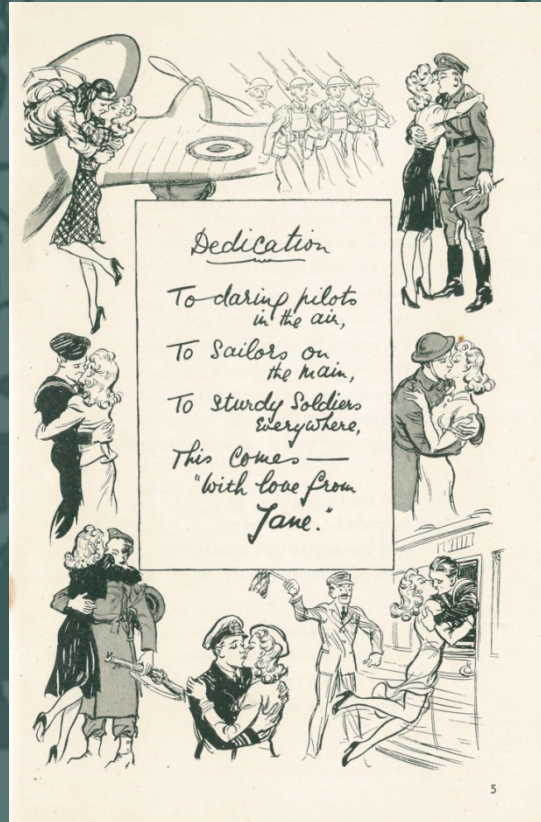 Dedication
To daring pilots
in the air,
To Sailors on
the main,
To Sturdy Soldiers
Everywhere,
This Comes —
"With love from
Jane."
5